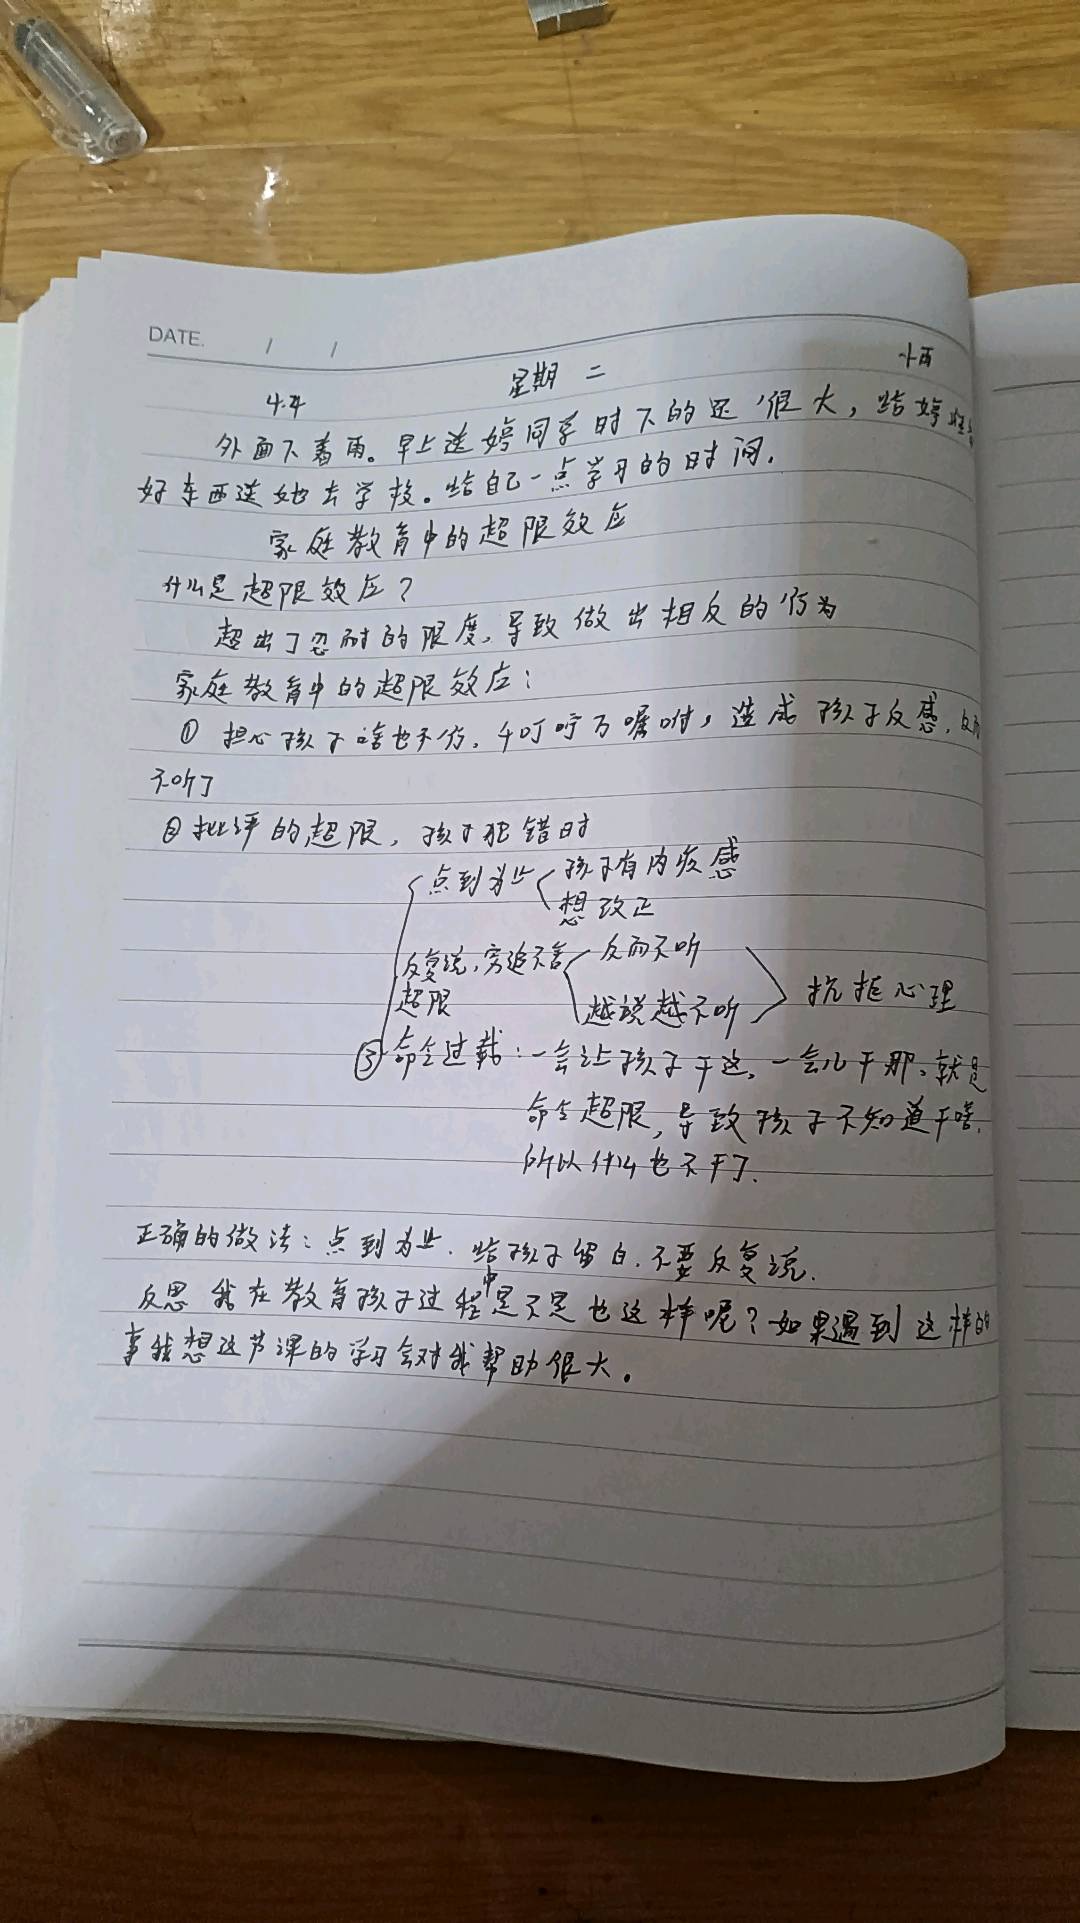 DATE. / /
4.4 星期二 小雨
外面下着雨。早上送婷同学时下的还很大，给婷
好东西送她去学校。给自己一点学习的时间.
家庭教育中的超限效应
什么是超限效应？
超出了忍耐的限度,导致做出相反的行为
家庭教育中的超限效应：
① 担心孩子啥也不行,千叮咛万嘱咐,造成孩子反感,反而
不听了
②批评的超限,孩子犯错时
点到为止 孩子有内疚感
想改正
反复说,穷追不舍 反而不听
超限 越说越不听 抗拒心理
③命令过载：一会让孩子干这,一会儿干那、就是
命令超限,导致孩子不知道干啥.
所以什么也不干了.
正确的做法：点到为止.给孩子留白.不要反复说.
反思 我在教育孩子过程中是不是也这样呢？如果遇到这样的
事我想这节课的学习会对我帮助很大。